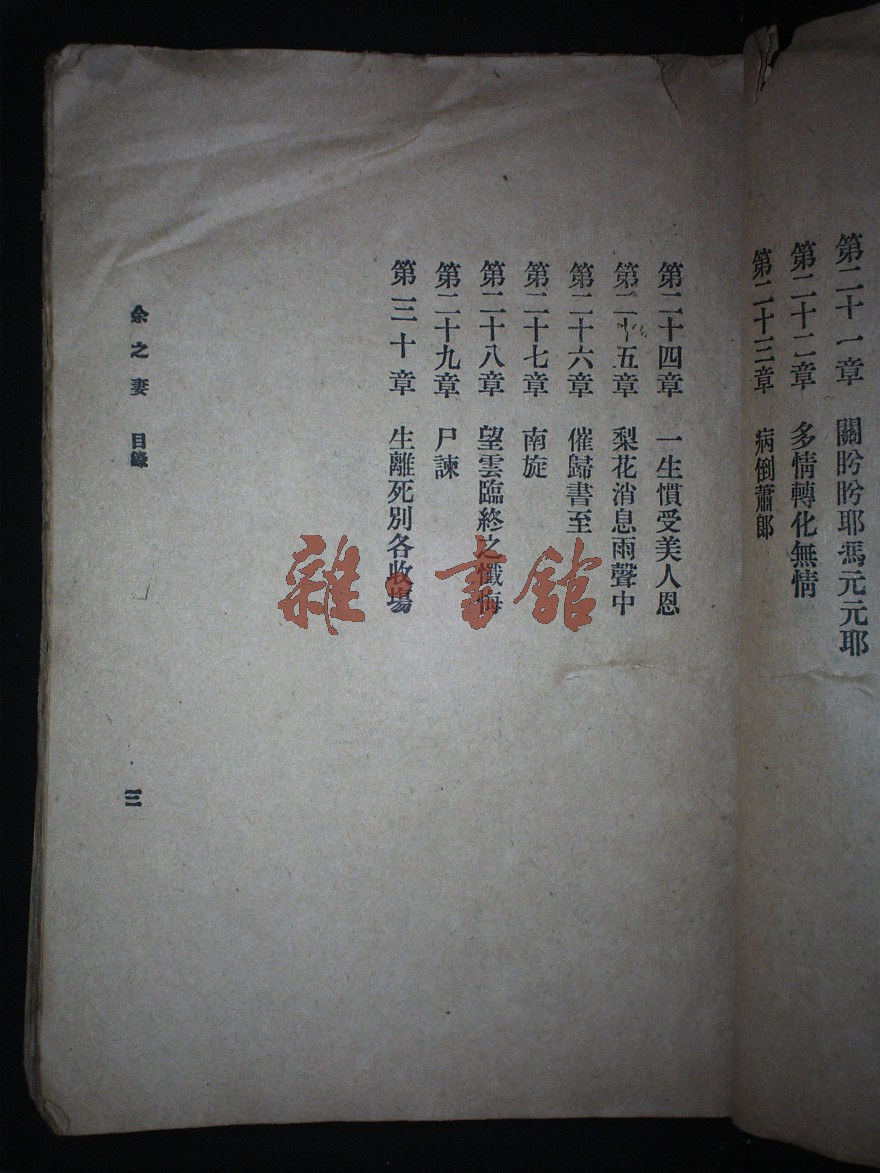 第二十一章 關盼盼耶馮元元耶
第二十二章 多情轉化無情
第二十三章 病倒蕭郎
第二十四章 一生慣受美人恩
第二十五章 梨花消息雨聲中
第二十六章 催歸書至
第二十七章 南旋
第二十八章 望雲臨終之懺悔
第二十九章 尸諫
第三十章 生離死別各收場
余之妻 目錄
三
雜·書舘